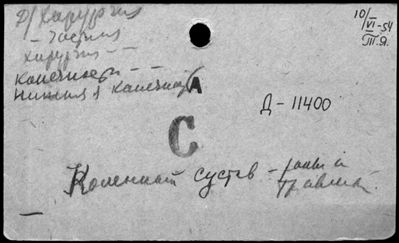 Д/Хирургия
10/VI-54
- частная
хирургия - -
конечности - -
нижняя конечность
А
Д - 11400
С
Коленный сустав - раны и
травмы